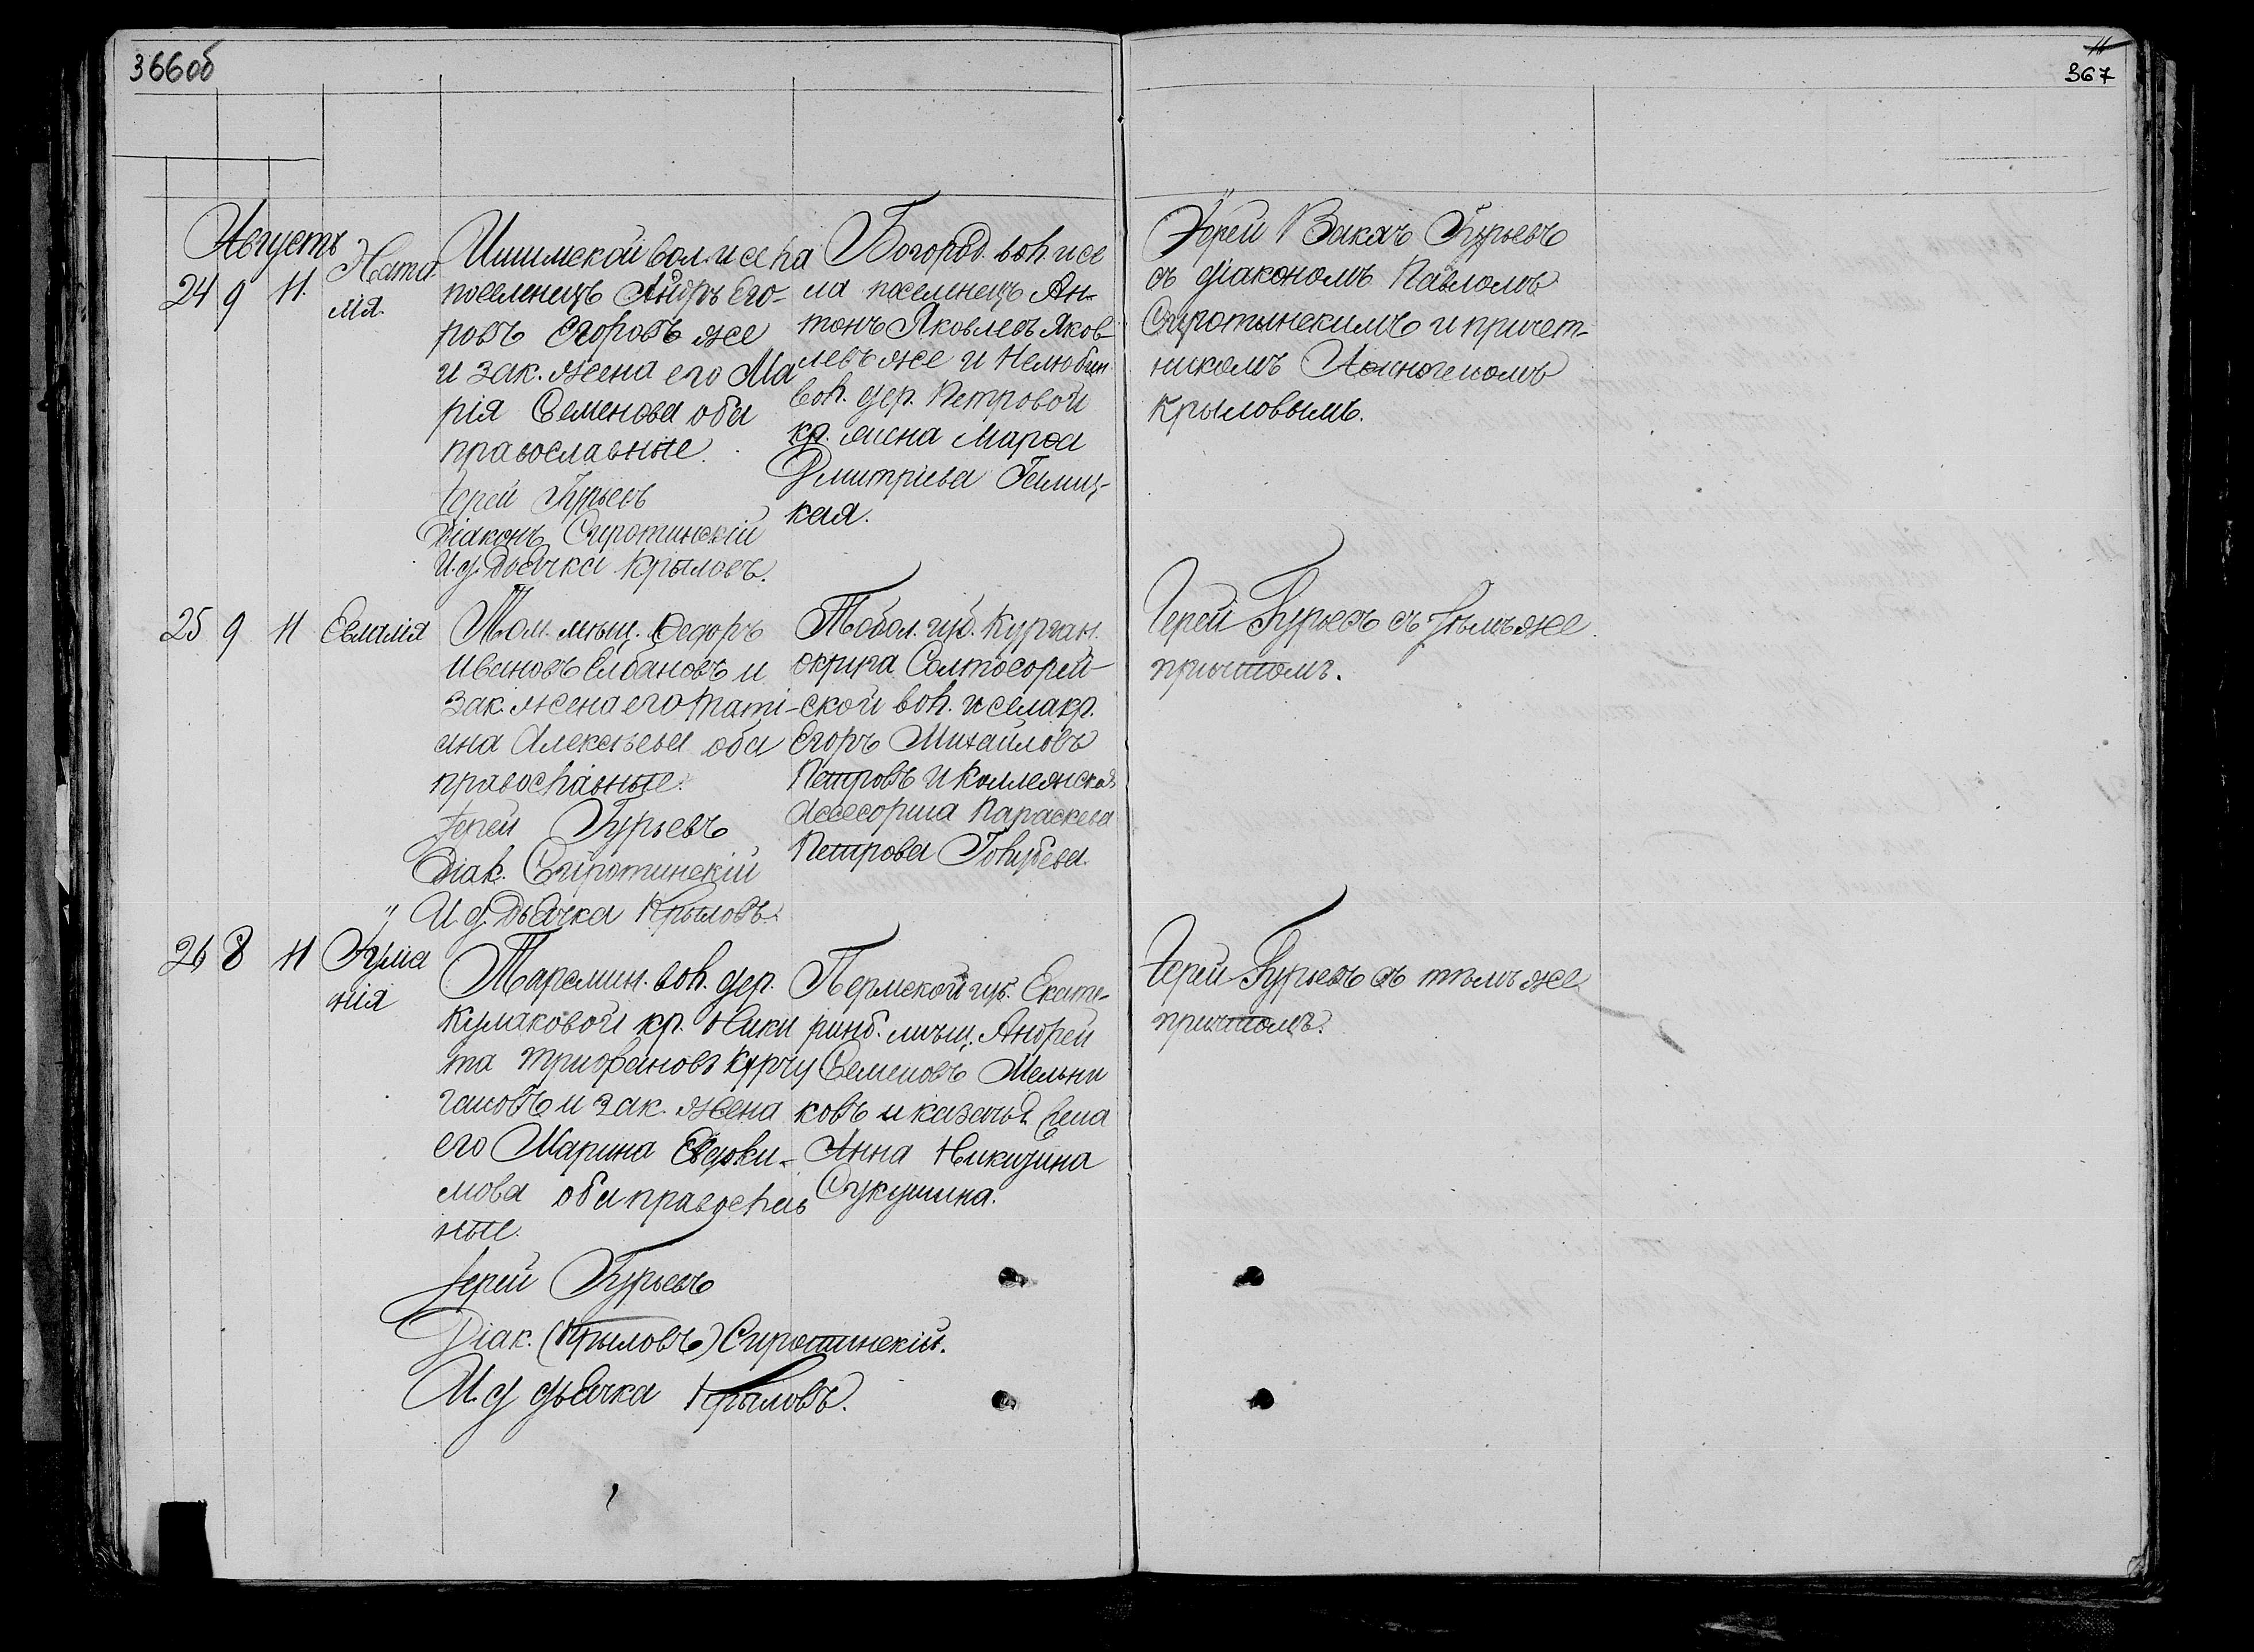 366об
11
367
Августъ
24 9 11. Ната
лія.
Ишимской вол. и села
поселенецъ Андръ Его-
ровъ Егоровъ же
и зак. жена его Ма
рія Семенова оба
православные.
Іерей Гурьевъ
Діаконъ Сиротинскій
И. д. Дьячка Крыловъ.
Богород. вол. и се
ла поселнецъ Ан-
тонъ Яковлевъ Яков-
левъ же и Нелюбин.
вол. дер. Петровой
кр. жена Марѳа
Дмитріева
кая.
Іерей Гурьевъ
съ діакономъ Павломъ
Сиротинскимъ и причет-
никомъ
Крыловымъ.
25 9 11 Евлалія
Том. мѣщ. Ѳедоръ
Ивановъ Елбановъ и
зак. жена его Таті-
ана Алексѣева оба
православные.
Іерей Гурьевъ
Діак. Сиротинскій
И. д. Дьячка Крыловъ.
Тобол. губ. Курган.
округа
ской вол. и села кр.
Егоръ Михайловъ
Петровъ и Коллежская
Ассесорша Параскева
Петрова Голубева.
Іерей Гурьевъ съ тѣмъ же
причтомъ.
26 8 11 Іуліа
нія
Тарсмин. вол. дер.
Кулаковой кр. Ники
та Трифановъ Курчу
гановъ и зак. жена
его Марина Евдоки-
мова оба православ
ные.
Іерей Гурьевъ
Діак. (Крыловъ) Сиротинскій.
И. д дьячка Крыловъ.
Пермской губ. Екате-
ринб. мѣщ. Андрей
Семеновъ Мельни
ковъ и казачья
Анна Никизина
Сукушина.
Іерей Гурьевъ съ тѣмъ же
причтомъ.